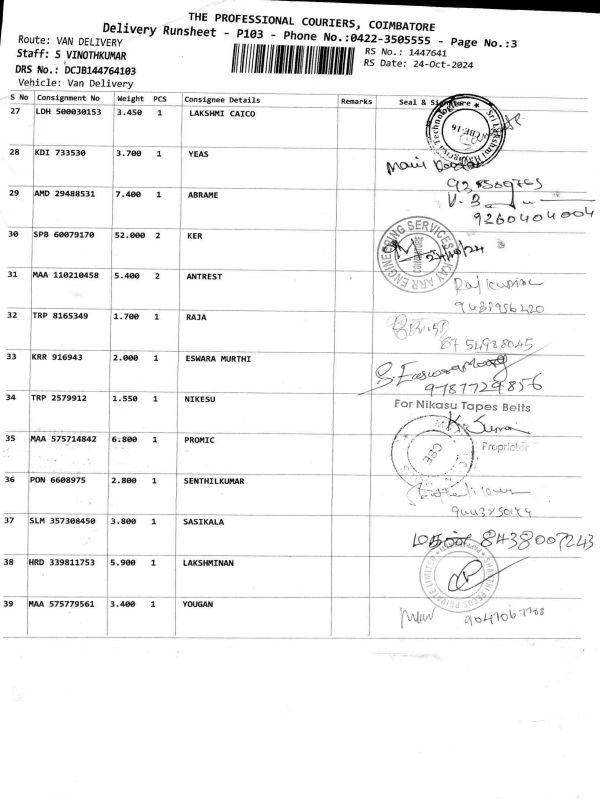 THE PROFESSIONAL COURIERS, COIMBATORE
Delivery Runsheet - P103 - Phone No.:0422-3505555 - Page No.:3
Route: VAN DELIVERY
RS No.: 1447641
Staff: S VINOTHKUMAR
RS Date: 24-Oct-2024
DRS No.: DCJB144764103
Vehicle: Van Delivery
S No Consignment No Weight PCS Consignee Details Remarks Seal &
27 LDH 500030153 3.450 1 LAKSHMI CAICO
28 KDI 733530 3.700 1 YEAS
29 AMD 29488531 7.400 1 ABRAME
V. B
9260404004
30 SPB 60079170 52.000 2 KER
ENGINEERING SERVICES
COIMBATORE
31 MAA 110210458 5.400 2 ANTREST
Rajkumar
32 TRP 8165349 1.700 1 RAJA
8754988045
33 KRR 916943 2.000 1 ESWARA MURTHI
S. Easwaramoorthy
9787729856
34 TRP 2579912 1.550 1 NIKESU
For Nikasu Tapes Belts
Proprietor
35 MAA 575714842 6.800 1 PROMIC
CBE
36 PON 6608975 2.800 1 SENTHILKUMAR
37 SLM 357308450 3.800 1 SASIKALA
8438007243
38 HRD 339811753 5.900 1 LAKSHMINAN
PRIVATE LIMITED
39 MAA 575779561 3.400 1 YOUGAN